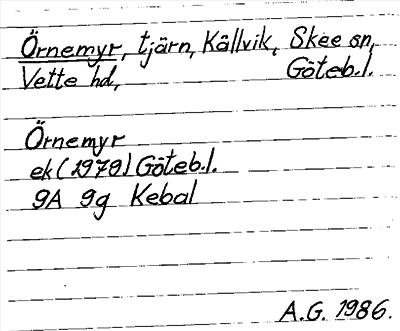 Örnemyr, tjärn, Källvik, Skee sn,
Vette hd, Göteb.l.
Örnemyr
ek (1979) Göteb.l.
9A 9g Kebal
A.G. 1986.